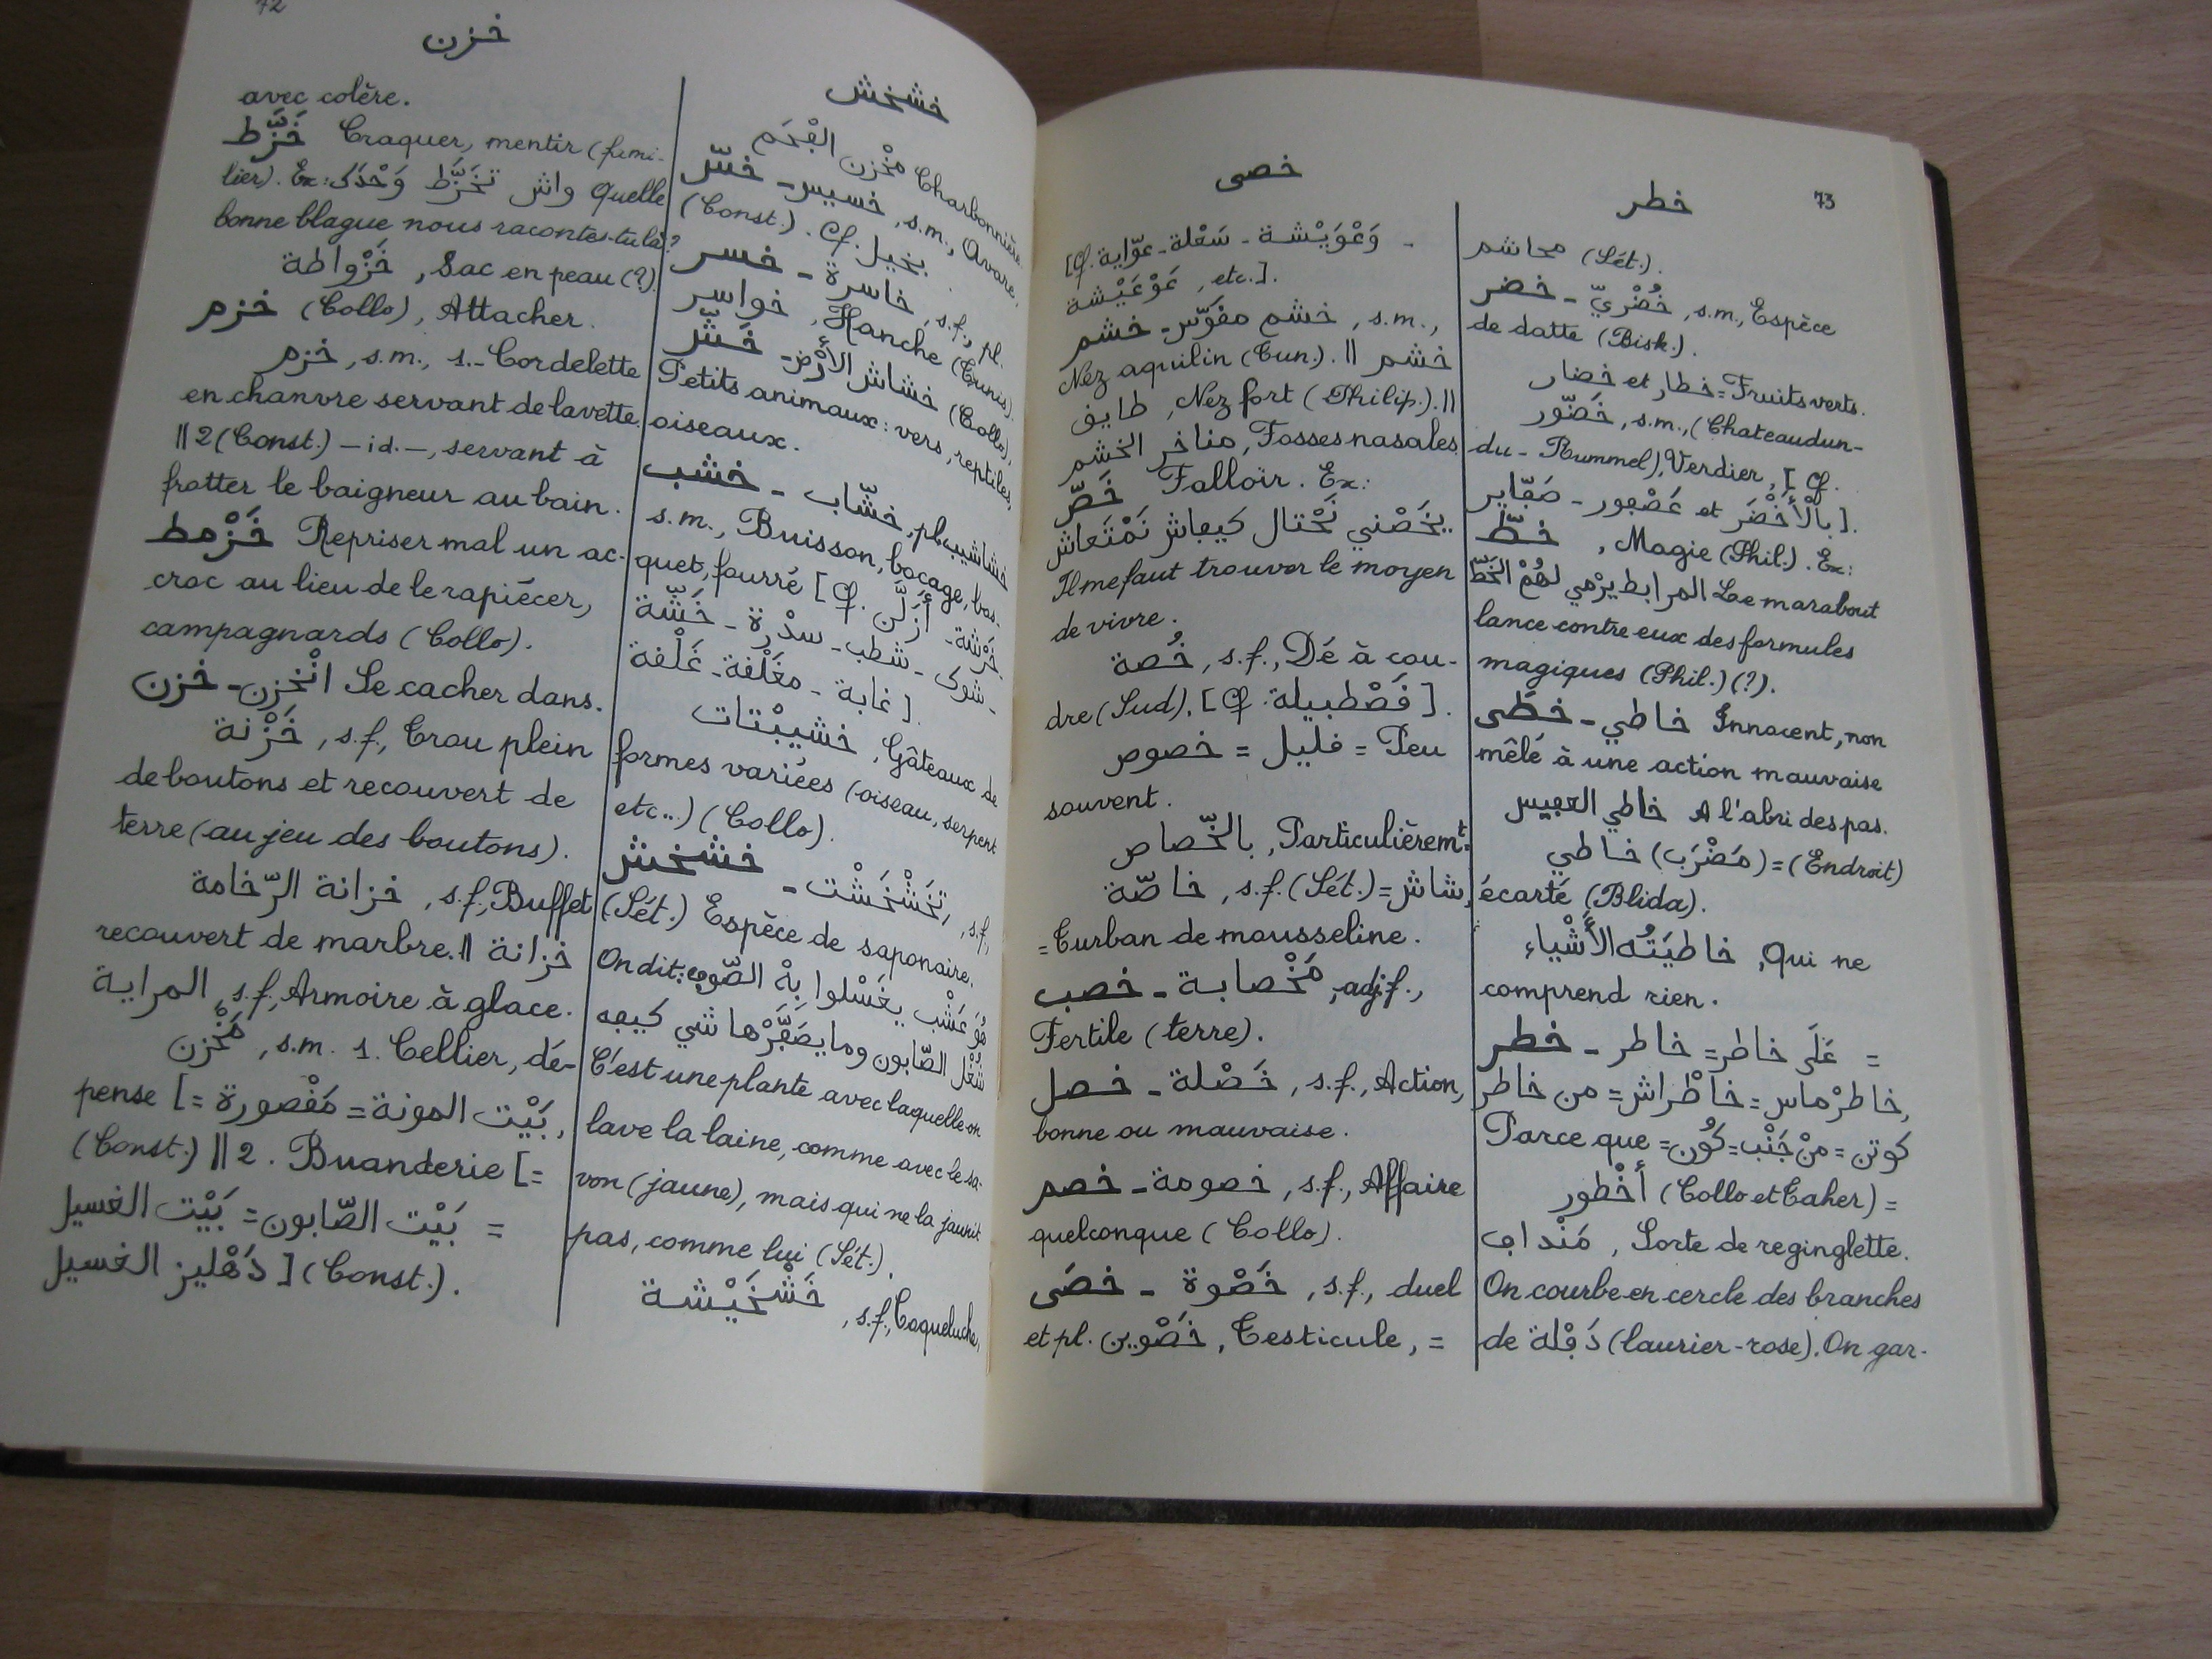 72
خزن
avec colère.
خَزّط Craquer, mentir (fami-
lier). Ex: واش تخَزَّط وَحْدَك Quelle
bonne blague nous racontes-tu là?
خَزْواطة, Sac en peau (?).
خزم (Collo), Attacher.
خزم, s.m., 1.- Cordelette
en chanvre servant de lavette.
|| 2 (Const.) - id. -, servant à
frotter le baigneur au bain.
خَزْمط Repriser mal un ac-
croc au lieu de le rapiécer,
campagnards (Collo).
خزن - انْخزن Se cacher dans.
خَزْنة, s.f., Trou plein
de boutons et recouvert de
terre (au jeu des boutons).
خزانة الرّخامة, s.f., Buffet
recouvert de marbre. || خزانة
المراية, s.f., Armoire à glace.
مَخْزن, s.m. 1. Cellier, dé-
pense [= بَيْت المونة = مَفْصورة,
(Const.) || 2. Buanderie [=
= بَيْت الصّابون = بَيْت الغسيل
دَهْليز الغسيل] (Const.).
خشخش
مْخْزن الڢْحَم Charbonnière.
خسّ - خسيس, s.m., Avare,
(Const.). Cf. بخيل.
خسر - خاسرة, s.f., pl.
خواسر, Hanche (Tunis).
خَشّ - خشاش الأَرْض (Collo),
Petits animaux: vers, reptiles,
oiseaux.
خشب - خشّاب, pl. خشاشيب
s.m., Buisson, bocage, bos-
quet, fourré [Cf. أَزَلَّن
خَرْشة - شوك - شَطب - سدْرة - خَشّة
- غابة - مغَلْڢة - غَلْڢة].
خشيبْتات, Gâteaux de
formes variées (oiseau, serpent
etc...) (Collo).
خشخش - تْخَشْخَشْت, s.f.,
(Sét.) Espèce de saponaire.
On dit: هُوَ عَشْب يغَسْلوا بهْ الصّوڢ
شُغْل الصّابون وما يصَڢَّرْها شي كيڢه
C'est une plante avec laquelle on
lave la laine, comme avec le sa-
von (jaune), mais qui ne la jaunit
pas, comme lui (Sét.).
خَشْخَيْشة, s.f., Coqueluche,
خصى
- وَعْوَيْشة - سَعْلة - عوّاية [Cf.
عَوْعَيْشة, etc.].
خشم - خشم مڧوّس, s.m.,
Nez aquilin (Tun.). || خشم
طايڢ, Nez fort (Philip.). ||
مناخر الخشم, Fosses nasales.
خَصّ Falloir. Ex:
يخَصْني نَحْتال كيڢاش نَمْتَعاش
Il me faut trouver le moyen
de vivre.
خُصة, s.f., Dé à cou-
dre (Sud). [Cf: ڧَصْطبيلة].
خصوص = ڧليل = Peu
souvent.
بالخّصاص, Particulièremt.
خاصّة, s.f. (Sét.) = شاش,
= Turban de mousseline.
خصب - مَخْصابة, adj. f.,
Fertile (terre).
خصل - خَصْلة, s.f., Action,
bonne ou mauvaise.
خصم - خصومة, s.f., Affaire
quelconque (Collo).
خصَى - خَصْوة, s.f., duel
et pl. خَصْوين, Testicule, =
خطر
73
محاشم (Sét.).
خضر - خُضْريّ, s.m., Espèce
de datte (Bisk.).
خضار et خطار = Fruits verts.
خَضّور, s.m., (Chateaudun-
du-Rummel), Verdier, [Cf.
بالْأَخْضَر et عَصْڢور - صَڢّاير].
خطّ, Magie (Phil.). Ex:
المرابط يرْمي لهُمْ الخَطّ Le marabout
lance contre eux des formules
magiques (Phil.) (?).
خطَى - خاطي Innocent, non
mêlé à une action mauvaise
خاطي العڢيس A l'abri des pas.
(مَضْرَب) خاطي = (Endroit)
écarté (Blida).
خاطيَتُه الأَشْياء, Qui ne
comprend rien.
خطر - خاطر = عَلَى خاطر =
خاطرْماس = خاطْراش = من خاطر,
كوتن = منْ جَنْب = كُون = Parce que
أَخْطور (Collo et Taher) =
مَنْداڢ, Sorte de reginglette.
On courbe en cercle des branches
de دَڢْلة (laurier-rose). On gar-